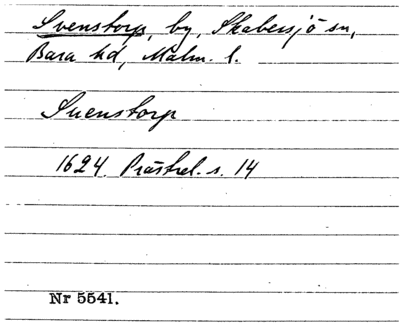 Svenstorp, by, Skabersjö sn,
Bara hd, Malm. l.
Suenstorp
1624. Prästrel. s. 14
Nr 5541.